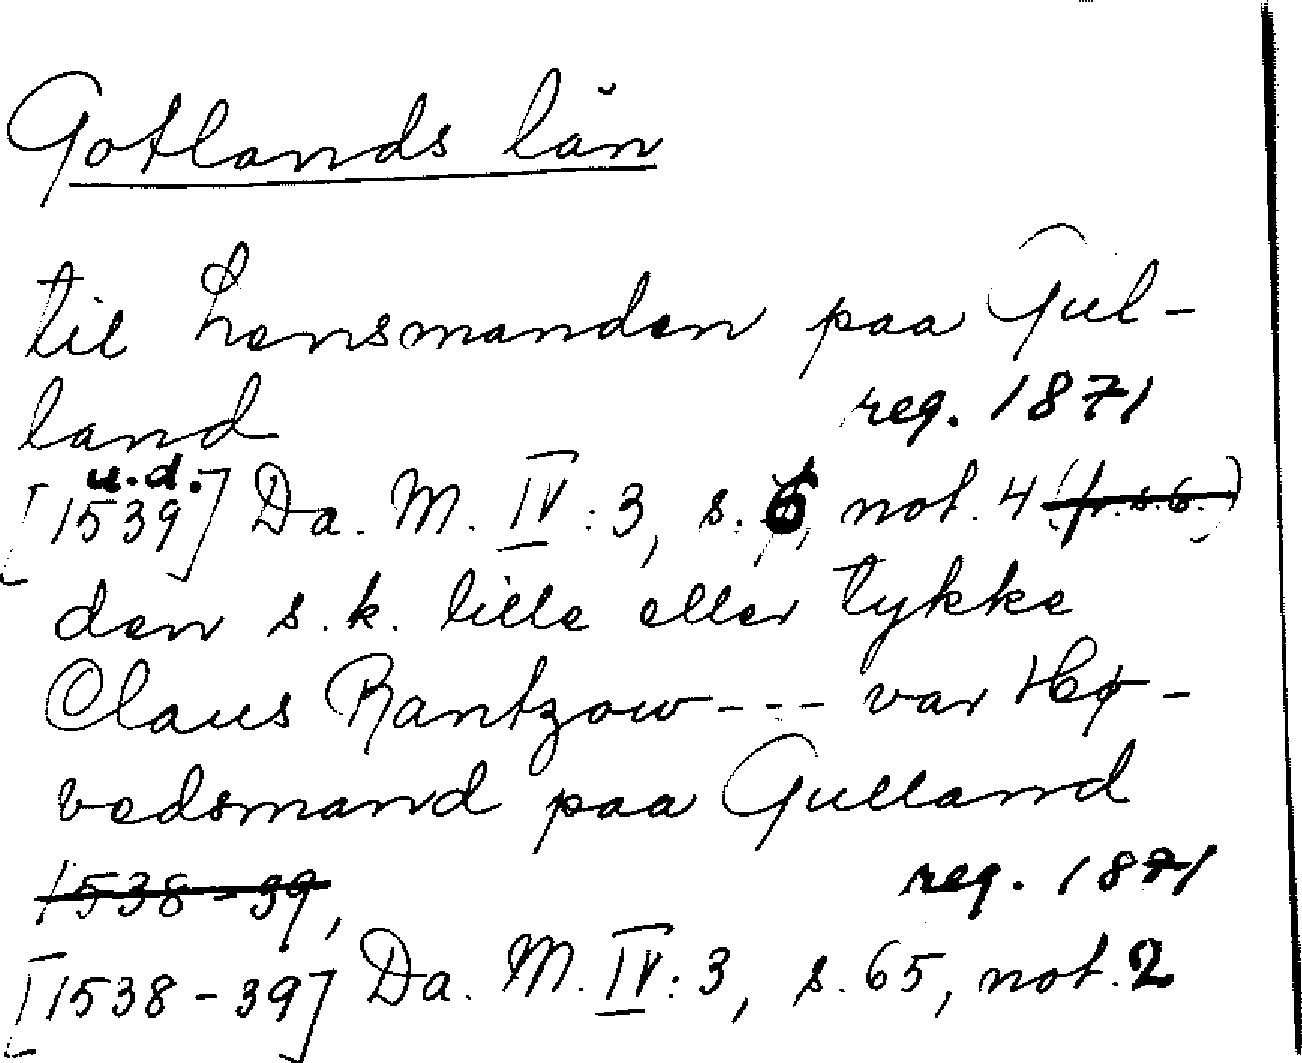 Gotlands län
til Lensmanden paa Gul-
land reg. 1871
u.d.
[1539] Da. M. IV:3, s. 6, not. 4 (fr. s. 6.)
den s.k. lille eller tykke
Claus Rantzow --- var Hø-
vedsmand paa Gulland
1538-39, reg. 1871
[1538-39] Da. M. IV:3, s. 65, not. 2